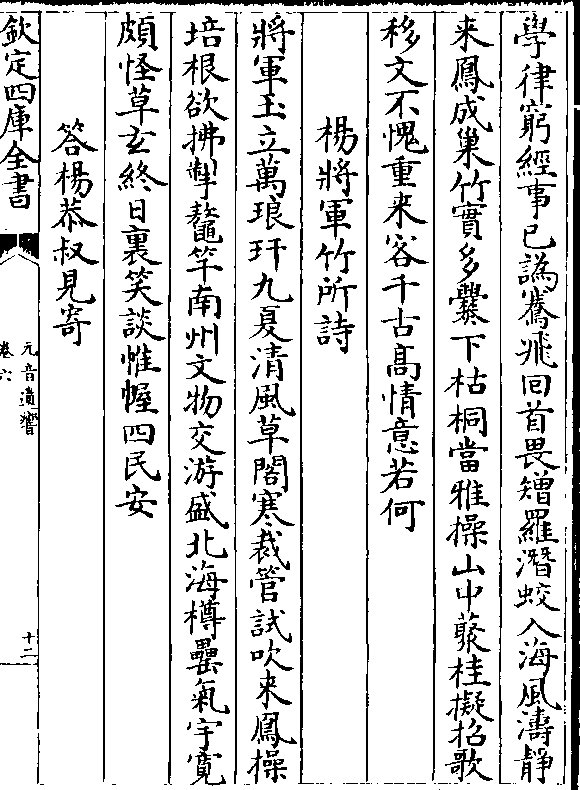 學律窮經事已譌驚飛回首畏矰羅潛蛟入海風濤靜
来鳳成巢竹實多爨下枯桐當雅操山中叢桂擬招歌
移文不愧重来客千古髙情意若何
楊將軍竹所詩
將軍玉立萬琅玕九夏清風草閣寒裁管試吹来鳳操
培根欲拂掣鼇竿南州文物交游盛北海樽罍氣宇寛
頗怪草玄終日裏笑談帷幄四民安
答楊恭叔見寄
欽定四庫全書
元音遺響
卷六
十二